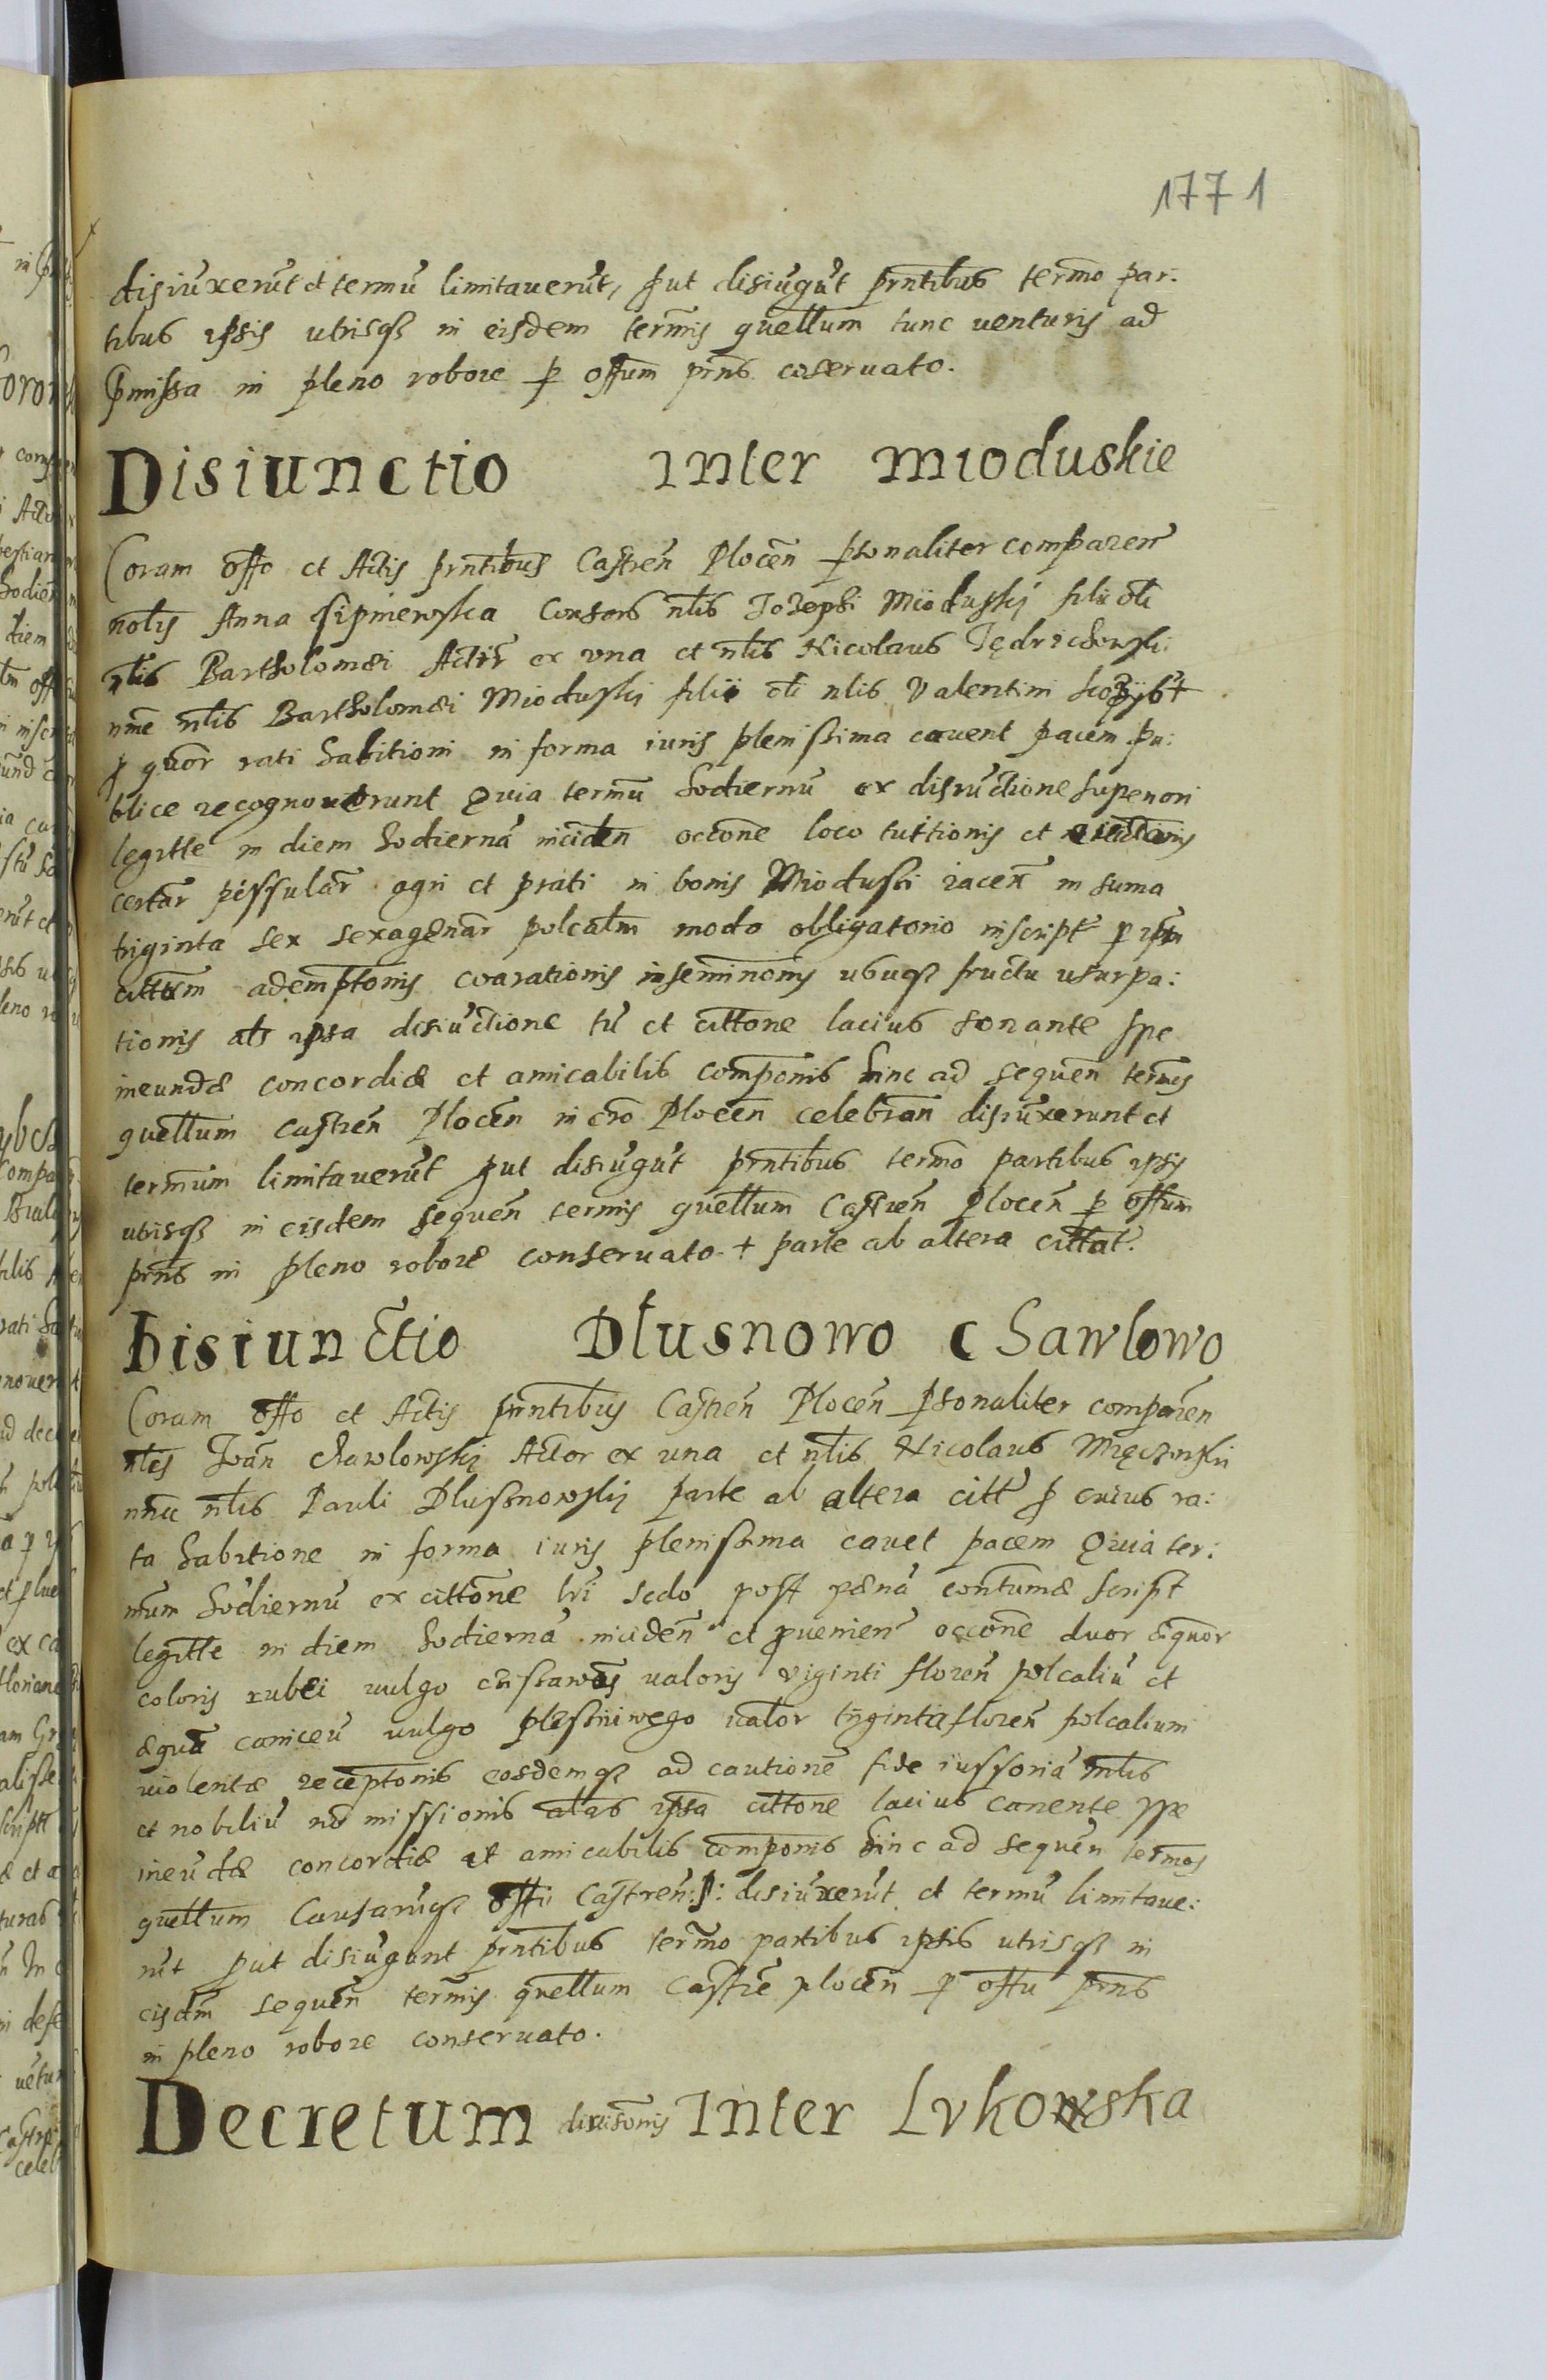 1771
disiūxerūt et termū limitaverūt, put disiūgūt prntibus termo par:
tibus ipsis utrisq3 in eisdem termis querellum tunc venturis ad
pmissa in pleno robore p offum prns coservato.
Disiunctio Inter Mioduskie
Coram offo et Actis prntibus Castren Plocen psonaliter comparen
nobis Anna Sipniewska Consors nlis Josephi Mioduski filii oli
nlis Bartholomæi Actrix ex una et nlis Nicolaus Jędrichowski
nme nlis Bartholomæi Mioduski filii oli nlis Valentini
p quor rati habitioni in forma iuris plenissima cavent pacem pu:
blice recognoverunt Quia termū hodiernū ex disiūctione superiori
legitte in diem hodiernā inciden occone loco tuitionis et evictionis
certar pissular agri et prati in bonis Mioduski iacen in suma
triginta sex sexagenar polcalm modo obligatorio inscript p
cittam ademptonis coarationis inseminonis usuq3 fructu usurpa:
tionis ab ipsa disiūctione tū et cittone lacius sonante spe
ineundæ concordiæ et amicabilis componis hinc ad sequen termis
querellum castren Plocen in cro Plocen celebran disiūxerunt et
termum limitaverūt put disiūgūt prntibus termo partibus ipsis
utrisq3 in eisdem sequen termis querellum Castren Plocen p offum
prns in pleno robore conservato. + parte ab altera cittat.
Disiunctio Dlusnowo Chawlowo
Coram offo et Actis prntibus Castren Plocen psonaliter comparen
nles Joan Chawlowski Actor ex una et nlis Nicolaus
nme nlis Pauli Dlusnowski parte ab altera citt p cuius ra:
ta habitione in forma iuris plenissima cavet pacem Quia ter:
mum hodiernū ex cittone lri scdo post pænā contumæ script
legitte in diem hodiernā inciden et pvenien occone duor equor
coloris rubei vulgo cisawe valoris viginti floren polcaliū et
æquā vulgo plesniwego valor triginta floren polcalium
violentæ receptonis eosdemq3 ad cautionē fide iussoriā nlis
et nobiliū no missionis alas ipsa cittone lacius canente spe
ineūdæ concordiæ et amicabilis componis hinc ad sequen termos
querellum Causarūq3 offii Castren: disiūxerūt et termū limitave:
rūt put disiūgunt prntibus termo partibus ipsis utrisq3 in
eisdm sequen termis querellum Castre plocen p offu prns
in pleno robore conservato.
Decretum divisionis Inter Lukowska